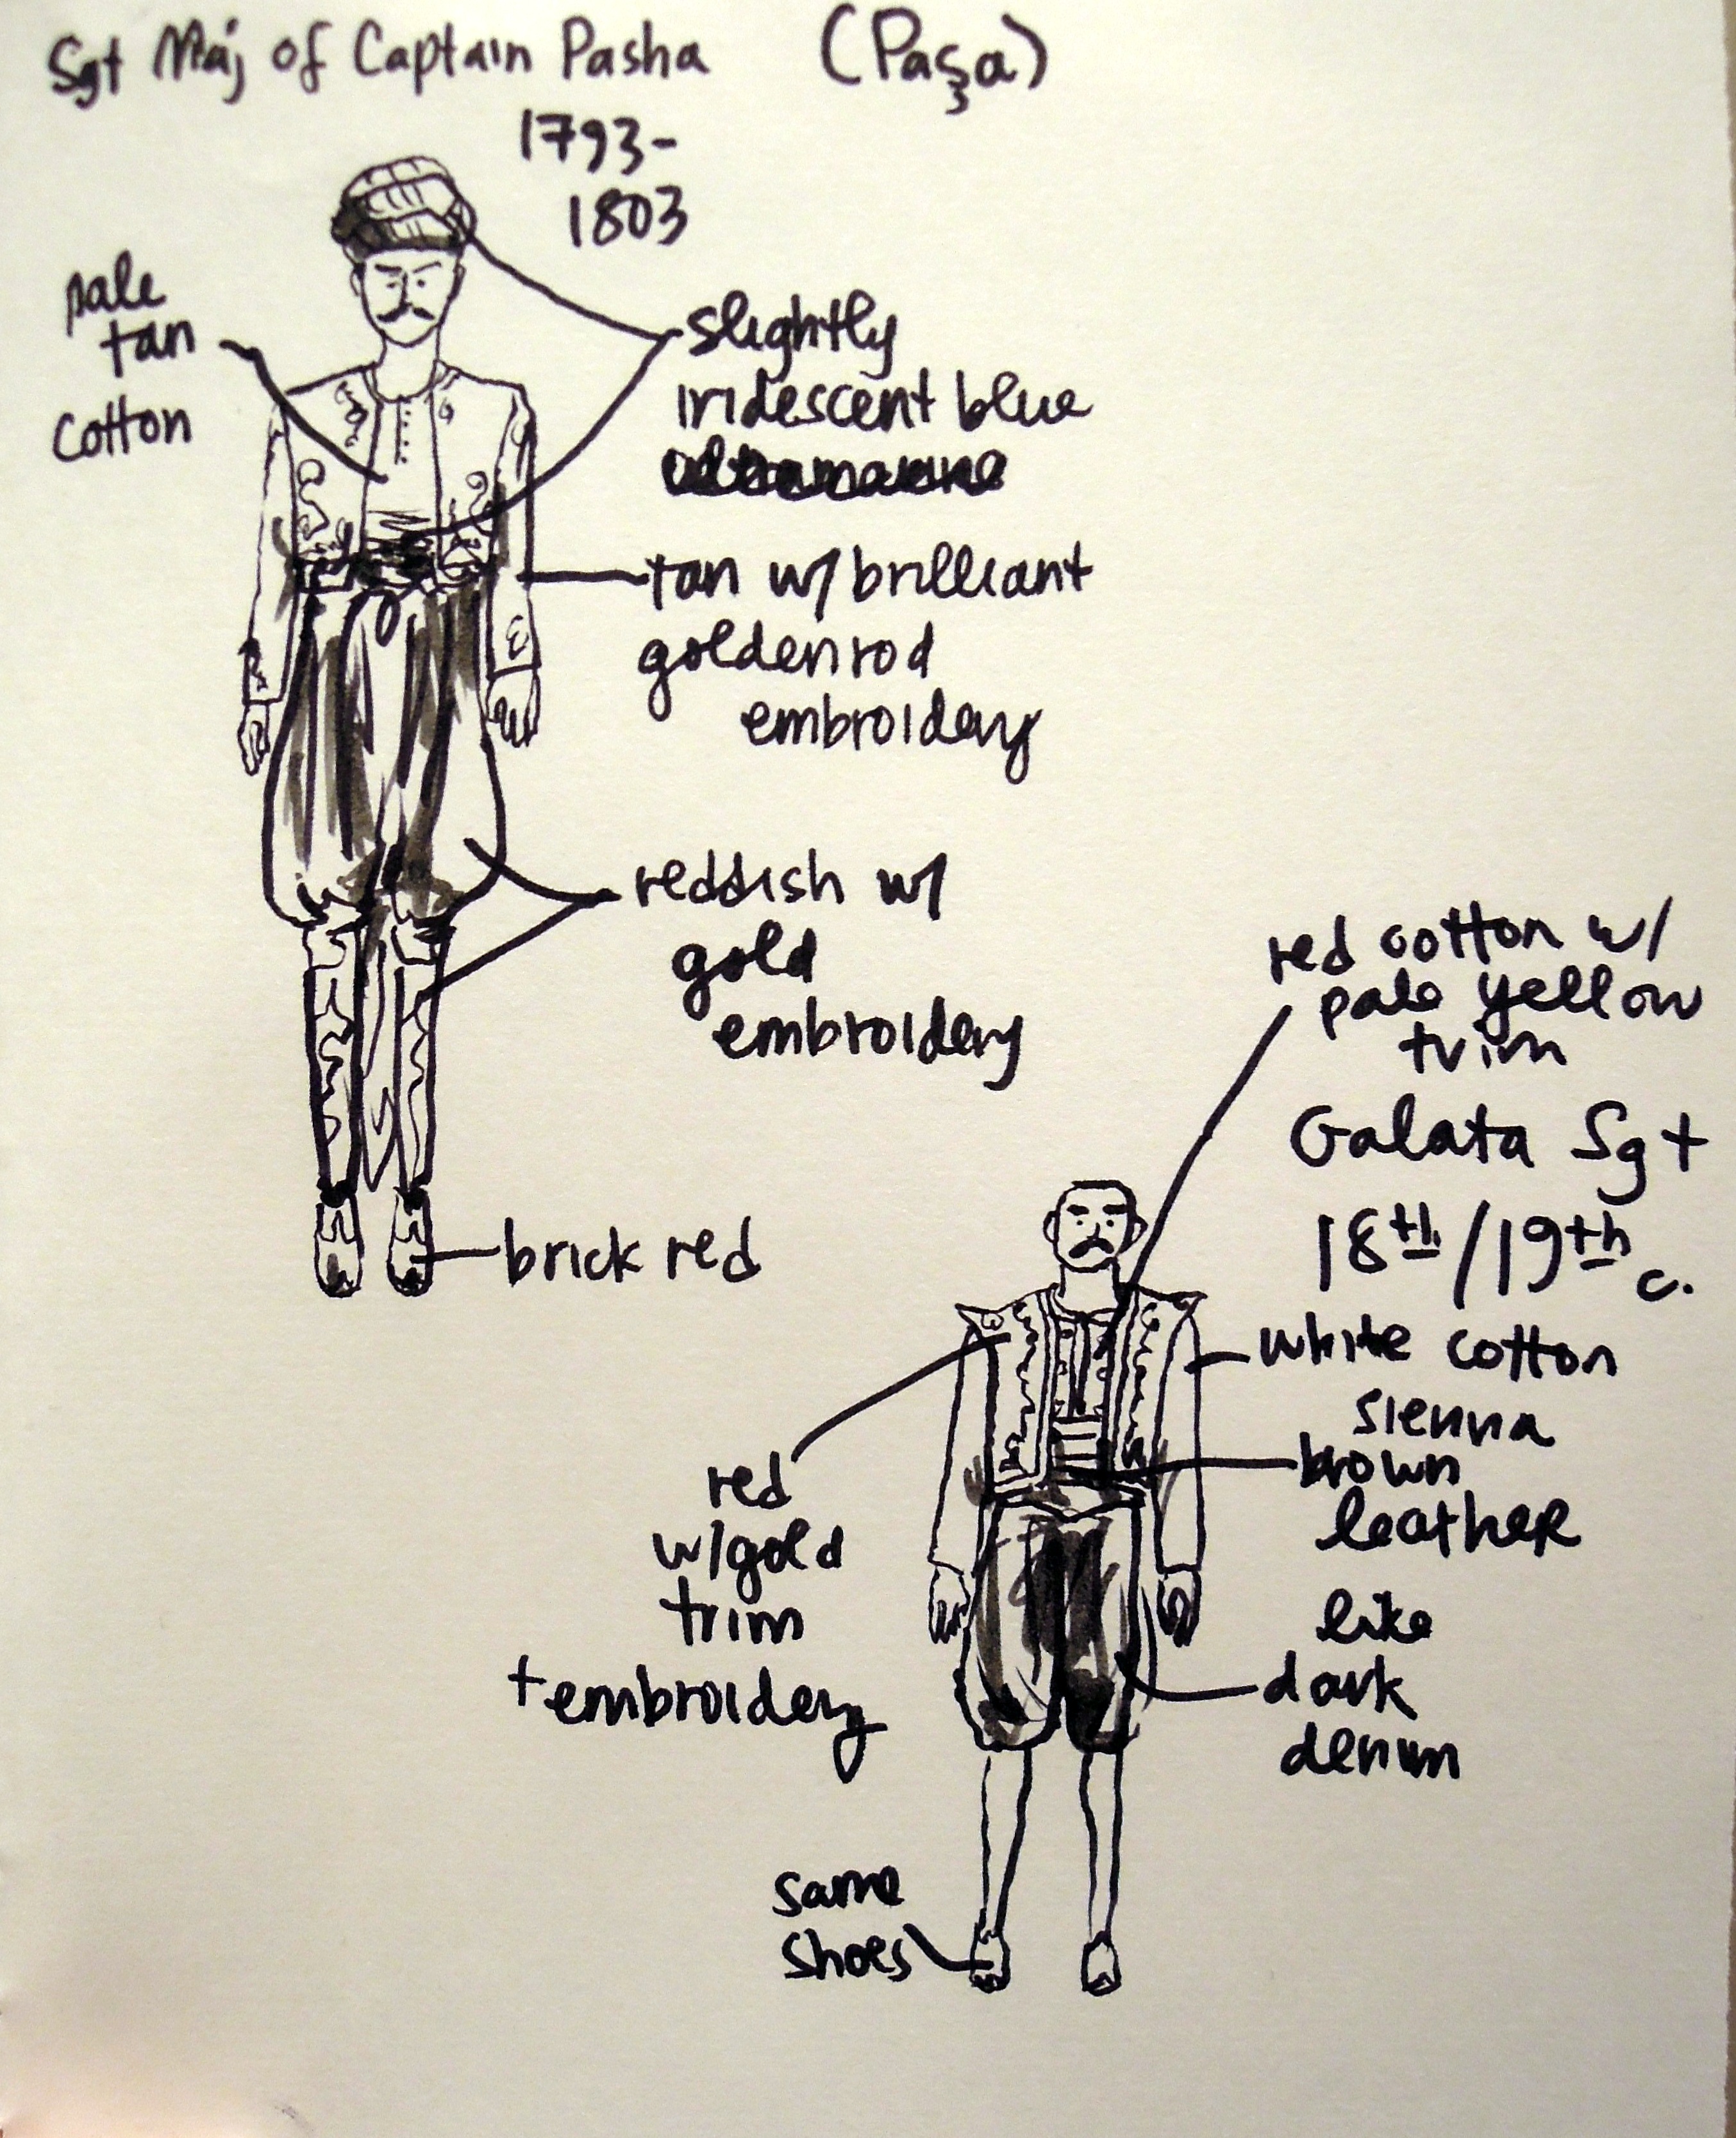 Sgt Maj of Captain Pasha (Paşa)
1793-
1803
pale
tan
cotton
slightly
iridescent blue
ultramarine
tan w/ brilliant
goldenrod
embroidery
reddish w/
gold
embroidery
brick red
red cotton w/
pale yellow
trim
Galata Sgt
18th/19th c.
white cotton
sienna
brown
leather
red
w/gold
trim
+embroidery
like
dark
denim
same
shoes